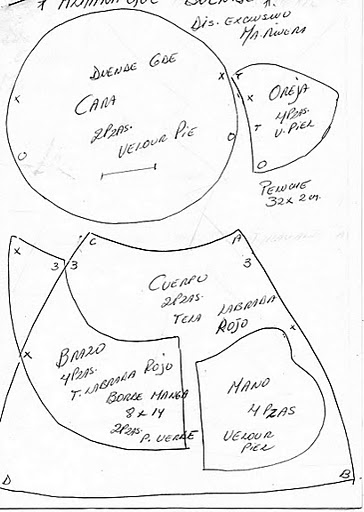 DUENDE
Dis. EXCLUSIVO
MA. RIVERA
DUENDE GDE
CARA
2PZAS.
VELOUR PIE
X
X
O
O
T
X
OREJA
4PZAS.
V. PIEL
T
O
PELUCHE
32 x 2 cm.
X
C
A
3
3
3
CUERPO
2PZAS.
TELA LABRADA
ROJO
X
X
BRAZO
4PZAS.
T. LABRADA ROJO
BORDE MANGA
8 x 14
2PZAS.
P. VERDE
MANO
4 PZAS
VELOUR
PIEL
D
B